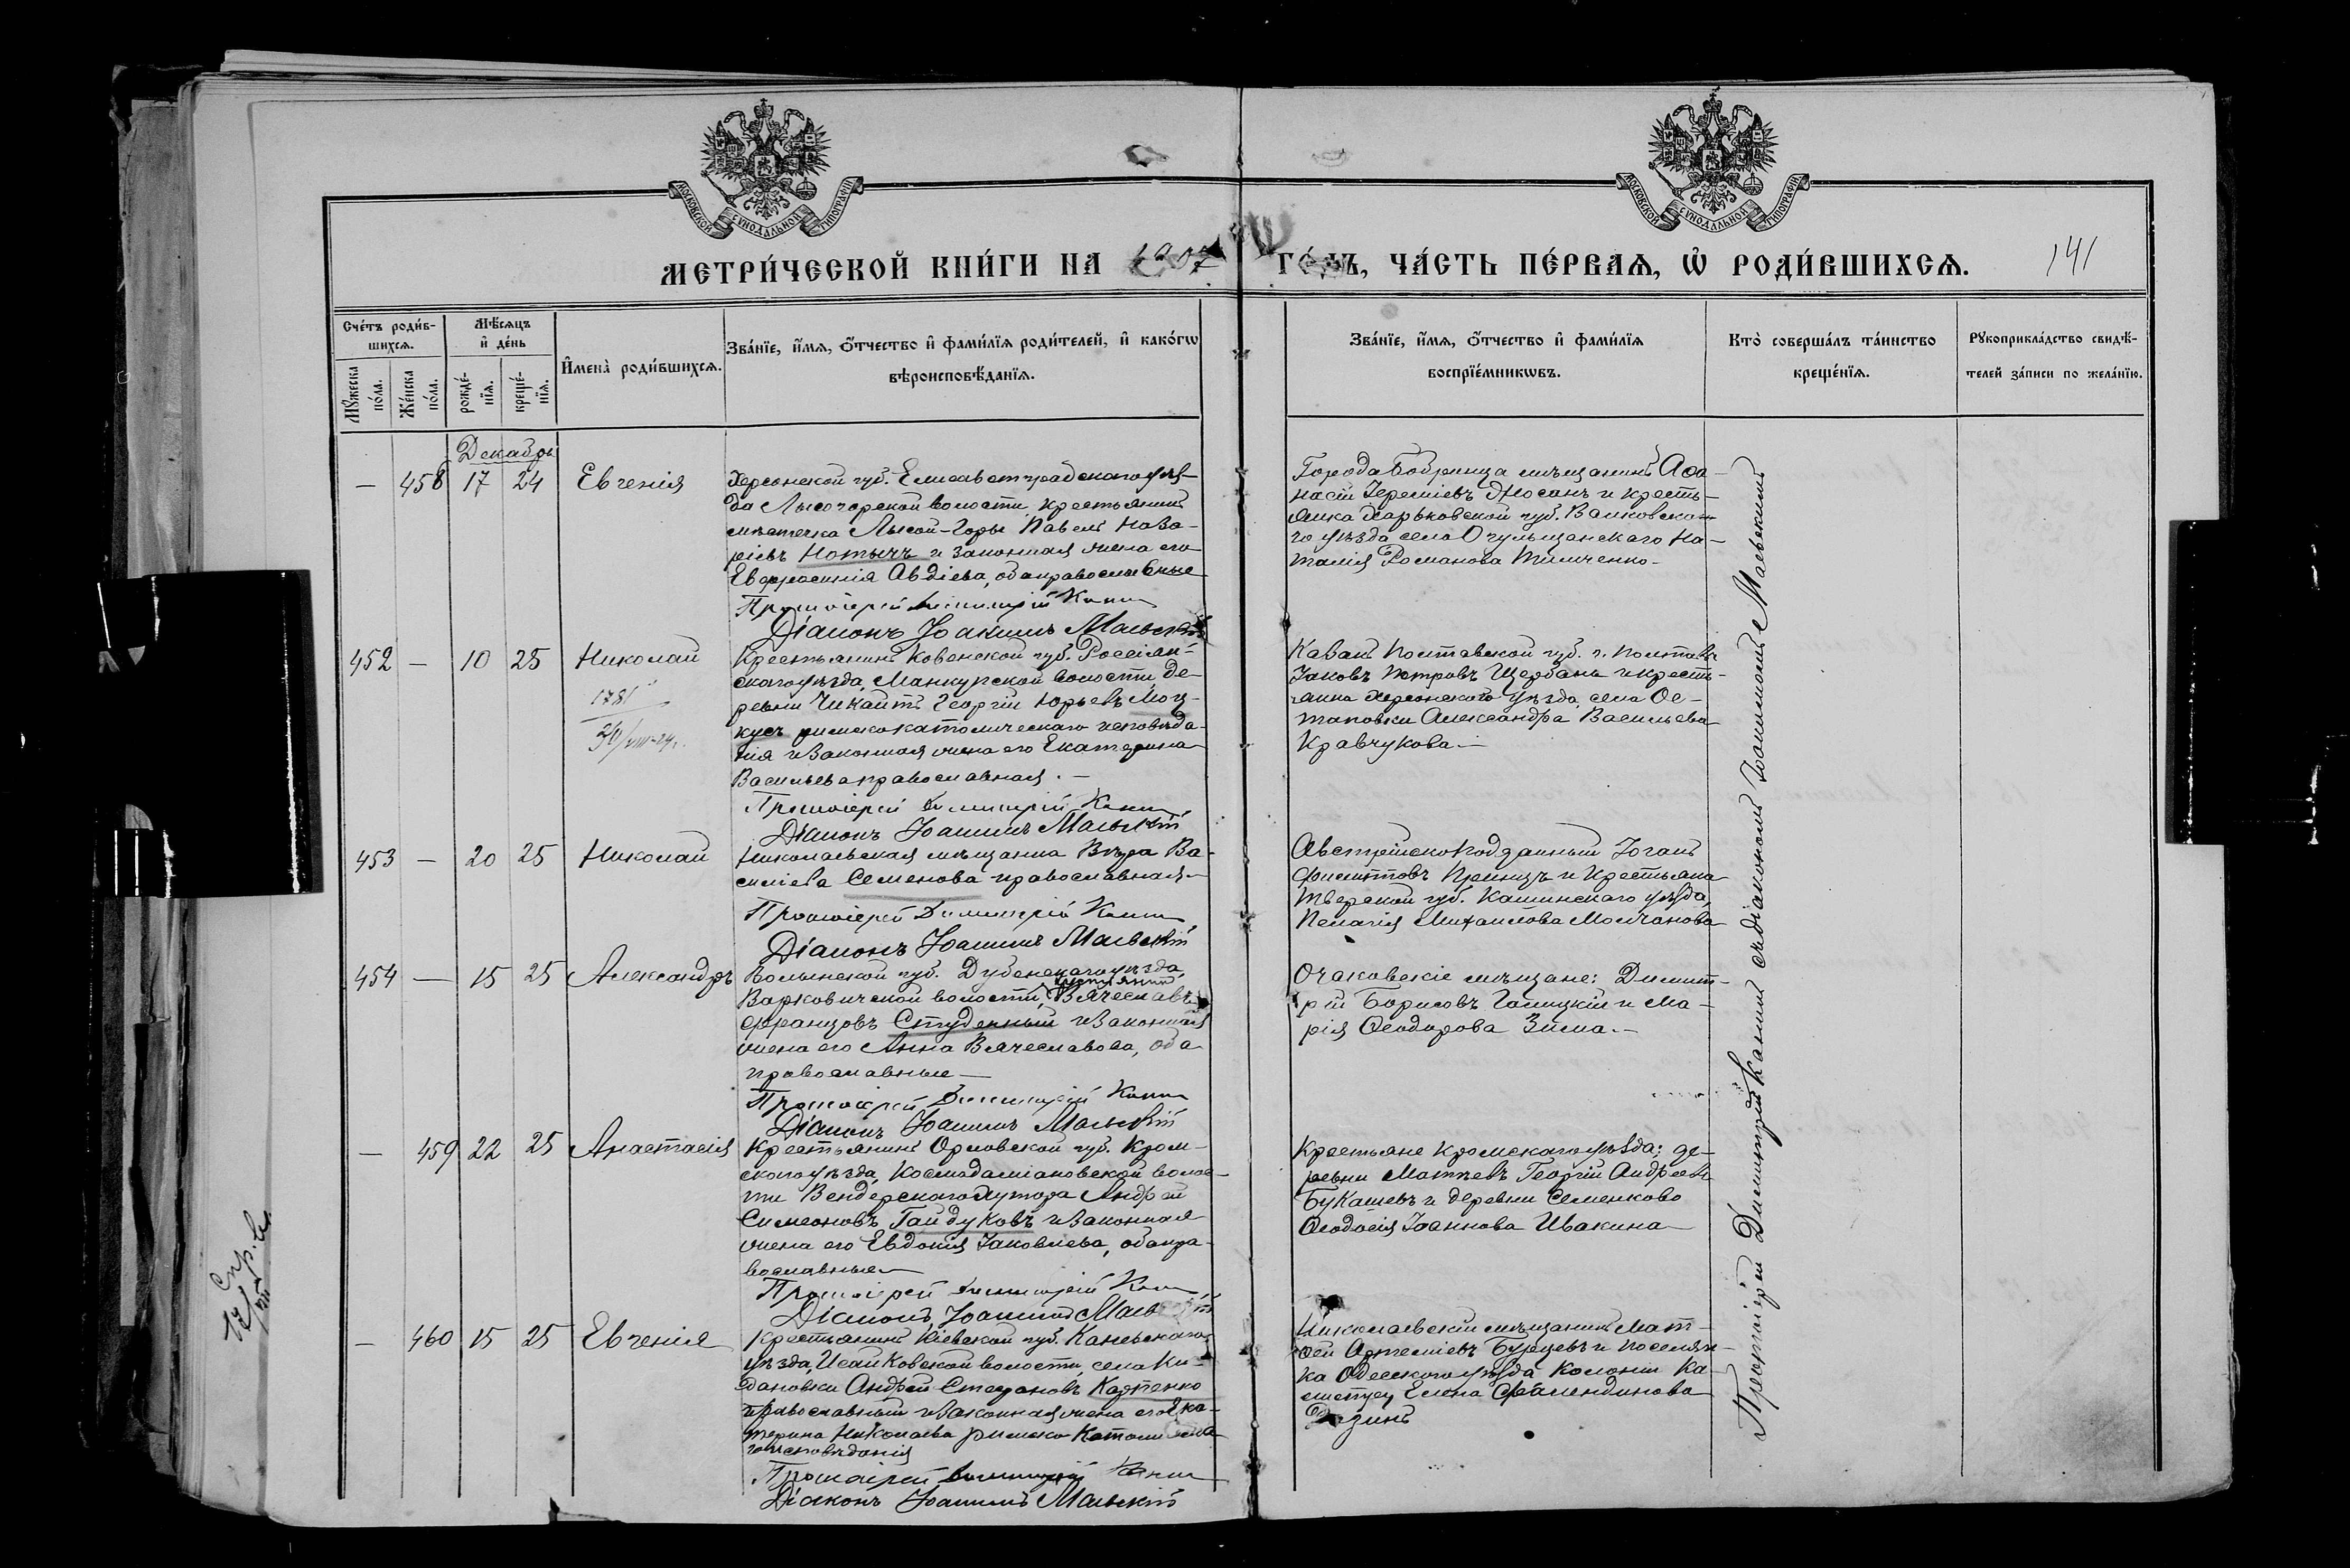 МОСКОВСКОЙ СѴНОДАЛЬНОЙ ТИПОГРАФІИ
МОСКОВСКОЙ СѴНОДАЛЬНОЙ ТИПОГРАФІИ
МЕТРИ́ЧЕСКОЙ КНИ́ГИ НА 1907 ГО́ДЪ, ЧА́СТЬ ПЕ́РВАѦ, Ѡ҆ РОДИ́ВШИХСѦ.
141
Сче́тъ роди́в-
шихсѧ.
Мꙋ́жеска по́ла.
Же́нска по́ла.
Мѣ́сѧцъ
и҆ де́нь
рожде́-
нїѧ.
креще́-
нїѧ.
И҆мена̀ роди́вшихсѧ.
Зва́нїе, и҆́мѧ, ѻ҆́тчество и҆ фами́лїѧ роди́телей, и҆ како́гѡ
вѣроисповѣ́данїѧ.
Зва́нїе, и҆́мѧ, ѻ҆́тчество и҆ фами́лїѧ
воспрїе́мникѡвъ.
Кто̀ соверша́лъ та́инство
креще́нїѧ.
Рꙋкоприкла́дство свидѣ́-
телей за́писи по жела́нїю.
Декабрь
— 458 17 24 Евгенія
Херсонской губ. Елисаветградскаго уѣз-
да Лысогорской волости, крестьянинъ
мѣстечка Лысой-Горы Павелъ Наза-
ріевъ Нотычъ и законная жена его
Евфросинія Авдіева, оба православные
Протоіерей Димитрій Канш
Діаконъ Іоакимъ Маевскій
Города Бобринца мѣщанинъ Аѳа-
насій Іереміевъ Джосанъ и кресть-
янка Харьковской губ. Валковска-
го уѣзда села Огульцанскаго На-
талія Романова Тимченко
452 — 10 25 Николай
1781
Крестьянинъ Ковенской губ. Россіян-
скаго уѣзда, Манкунской волости, де-
ревни Чикайтъ Георгій Юрьевъ Моц-
кусъ римско католическаго исповѣда-
нія и законная жена его Екатерина
Васильева православная. —
Протоіерей Димитрій Канш
Діаконъ Іоакимъ Маевскій
Казакъ Полтавской губ. г. Полтавы
Іаковъ Петровъ Щербань и кресть-
янка Херсонскаго уѣзда, села Ос-
таповки Александра Васильева
Кравчукова. —
453 — 20 25 Николай
Николаевская мѣщанка Вѣра Ва-
силіева Семенова православная —
Протоіерей Димитрій Канш
Діаконъ Іоакимъ Маевскій
Австрійскоподданный Іоганъ
Филиптовъ Преницъ и крестьянка
Тверской губ. Кашинскаго уѣзда,
Пелагія Михаилова Молчанова
454 — 15 25 Александръ
Волынской губ. Дубенскаго уѣзда,
Варковичской волости, крестьянинъ Вячеславъ
Францовъ Студенный и законная
жена его Анна Вячеславова, оба
православные —
Протоіерей Димитрій Канш
Діаконъ Іоакимъ Маевскій
Очаковскіе мѣщане: Димит-
рій Борисовъ Галицкій и Ма-
рія Ѳеодорова Зима. —
— 459 22 25 Анастасія
Крестьянинъ Орловской губ. Кром-
скаго уѣзда, Космодаміановской волос-
ти Вендерскаго хутора Андрей
Симеоновъ Гайдуковъ и законная
жена его Евдокія Іаковлева, оба пра-
вославные —
Протоіерей Димитрій Канш
Діаконъ Іоакимъ Маевскій
Крестьяне Кромскаго уѣзда: де-
ревни Матнева Георгій Андреевъ
Букашевъ и деревни Семенково
Ѳеодосія Іоаннова Ивакина
— 460 15 25 Евгенія
Крестьянинъ Кіевской губ. Каневскаго
уѣзда, Исайковской волости, села Ки-
дановки Андрей Стефановъ Карпенко
православный и законная жена его Ека-
терина Николаева римско католическа-
го исповѣданія
Протоіерей Димитрій Канш
Діаконъ Іоакимъ Маевскій
Николаевскій мѣщанинъ Мат-
ѳей Артеміевъ Бурцевъ и поселян-
ка Одесскаго уѣзда колоніи Ка-
Елена Фалендинова
Дазинъ
Протоіерей Димитрій Каншинъ съ діакономъ Іоакимомъ Маевскимъ
Спр.